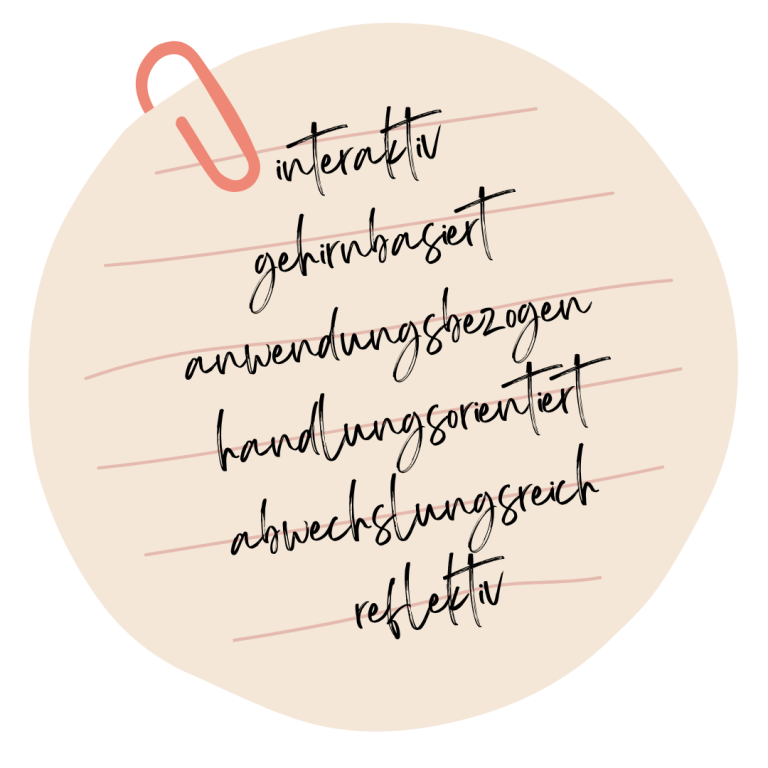 interaktiv
gehirnbasiert
anwendungsbezogen
handlungsorientiert
abwechslungsreich
reflektiv